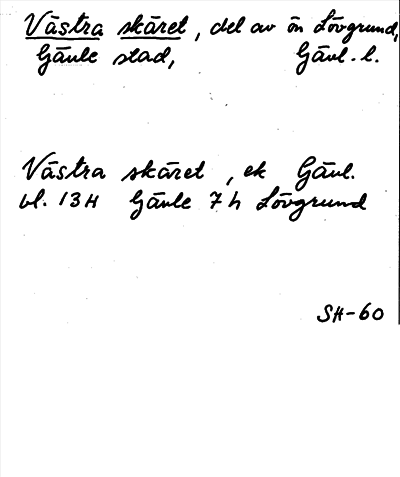 Västra skäret, del av ön Lövgrund,
Gävle stad, Gävl. l.
Västra skäret, ek Gävl.
bl. 13H Gävle 7 h Lövgrund
SH-60